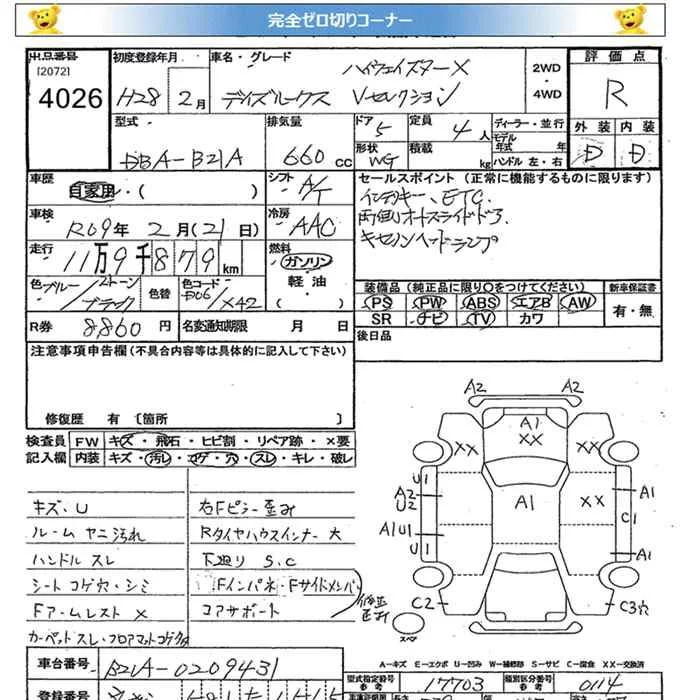 完全ゼロ切りコーナー
出品番号 初度登録年月 車名・グレード 評価点
[2072] ハイウェイスターX 2WD
4026 H28 2月 デイズルークス Vセレクション ・4WD R
型式 排気量 ドア 5 定員 4人 ディーラー・並行 外装 内装
DBA-B21A 660cc 形状 WG 積載 kg モデル年式 年 ハンドル 左・右 D D
車歴 自家用・( ) シフト A/T セールスポイント (正常に機能するものに限ります)
車検 R09年2月(21日) 冷房 AAC インテリキー、ETC
走行 11万9千879km 燃料 ガソリン 両側オートスライドドア
軽油 キセノンヘッドランプ
( )
色 ブルー/2トーン ブラック 色替 色コード /X42 装備品 (純正品に限り○をつけてください) 新車保証書
PS PW ABS エアB AW 有・無
R券 8860円 名変通知期限 月 日 SR ナビ TV カワ
注意事項申告欄(不具合内容等は具体的に記入して下さい) 後日品
修復歴 有 〔箇所 〕
検査員 FW キズ・飛石・ヒビ割・リペア跡・×要
記入欄 内装 キズ・汚レ・コゲ・穴・スレ・キレ・破レ
キズ・U 右Fピラー歪み
ルーム ヤニ汚れ Rタイヤハウスインナー 大
ハンドル スレ 下廻り S.C
シート コゲ穴・シミ Fインパネ・Fサイドメンバ
Fアームレスト × コアサポート
修正歪み
カーペットスレ・フロアマットコゲ
A2 A2
A1
XX
XX XX
U1
A2 A1
U2 A1 XX
C1
A1U1
U1 A1
C2 C3穴
スペア
A-キズ E-エクボ U-凹み W-補修跡 S-サビ C-腐食 XX-交換済
車台番号 B21A-0209431 型式指定番号 参考 17703 類別区分番号 参考 0114
登録番号